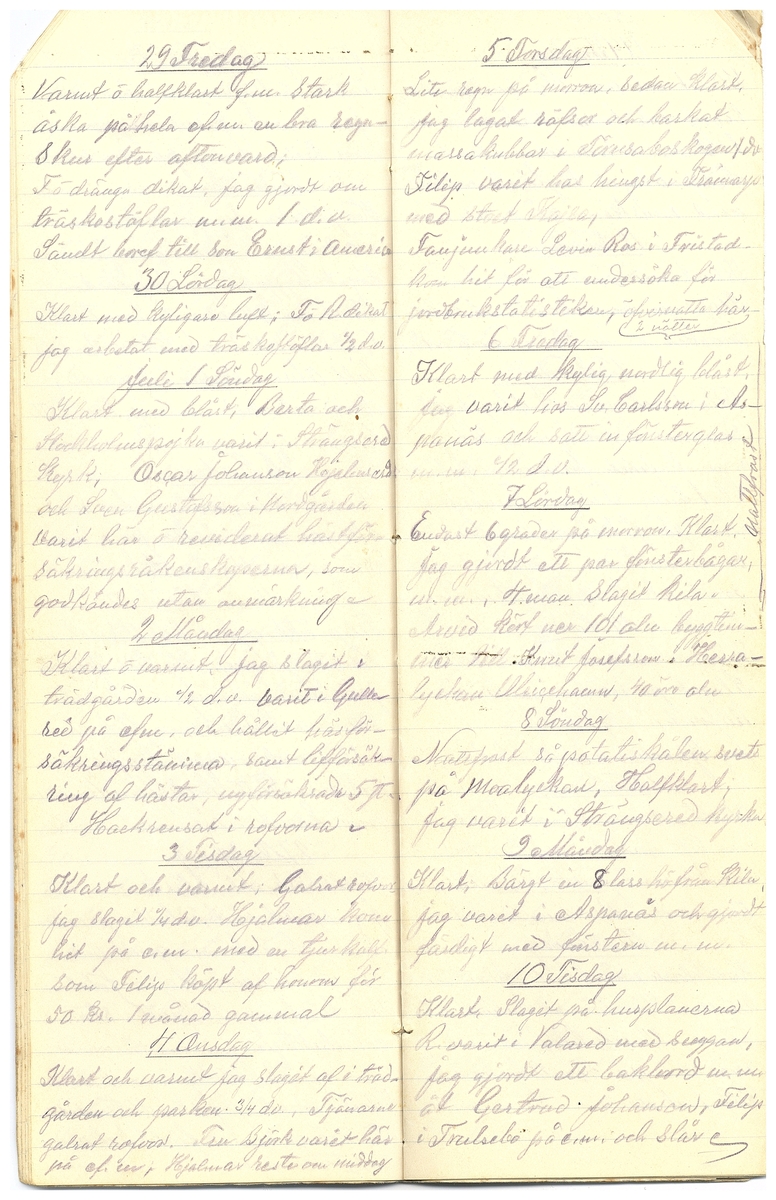 29 Fredag
Varmt ō halfklart f.m. Stark
åska på hela ef.m. en bra regn-
skur efter aftonvard;
Tō drängar dikat, jag gjordt om
träskostöflar m.m. 1 d.v.
Sändt bref till son Ernst i America
30 Lördag
Klart med kyligare luft; Tō R. dikat
jag arbetat med träskostöflar 1/2 d.v.
Juli 1 Söndag
Klart med blåst, Berta och
Stockholmspojka varit i Strängsered
kyrk; Oscar Johanson Höjelmsered
och Sven Gustafsson i Nordgården
varit här ō reviderat hästför-
säkringsräkenskaperna, som
godkändes utan anmärkning
2 Måndag
Klart ō varmt, jag slagit i
trädgården 1/2 d.v. varit i Gulle-
red på efm. och hållit hästför-
säkringsstämma, samt lifförsäk-
ring af hästar, nyförsäkrade 5 st
Hackrensat i rofvorna
3 Tisdag
Klart och varmt; Galrat rofvor
jag slagit 1/4 d.v. Hjalmar kom
hit på e.m. med en tjurkalf
som Filip köpt af honom för
50 kr. 1 månad gammal
4 Onsdag
Klart och varmt jag slagit af i träd-
gården och parken 3/4 d.v., Tjänarne
galrat rofvor. Fru Björk varit här
på ef.m; Hjalmar reste om middag
5 Torsdag
Lite regn på morron, sedan Klart,
jag lagat räfsor och barkat
massakubbar i Törnsaboskogen 1/2 dv
Filip varit hos hingst i Trämarp
med stoet Kajsa,
Fanjunkare Levin Ros i Fristad
kom hit för att undersöka för
jordbrukstatistiken, öfvernatta här
2 nätter
6 Fredag
Klart med kylig nordlig blåst,
jag varit hos Sv. Carlsson i As-
panäs och satt in fönsterglas
m.m. 1/2 d.v.
Nattfrost
7 Lördag
Endast 6 grader på morron. Klart.
Jag gjordt ett par fönsterbågar,
m.m., 4 man slagit Kila.
Arvid kört ner 101 aln byggtim-
mer till Knut Josefsson i Hessa-
lyckan Ulricehamn, 40 öre aln
8 Söndag
Nattfrost så potatiskålen svets
på Moalyckan, Halfklart;
jag varit i Strängsered kyrka
9 Måndag
Klart; Bärgt in 8 lass hö från Kila,
jag varit i Aspanäs och gjordt
färdigt med fönstern m.m.
10 Tisdag
Klart, Slagit på husplanerna
R. varit i Valared med suggan,
jag gjordt ett bakbord m.m
åt Gertrud Johanson, Filip
i Trulsebo på e.m. och slår